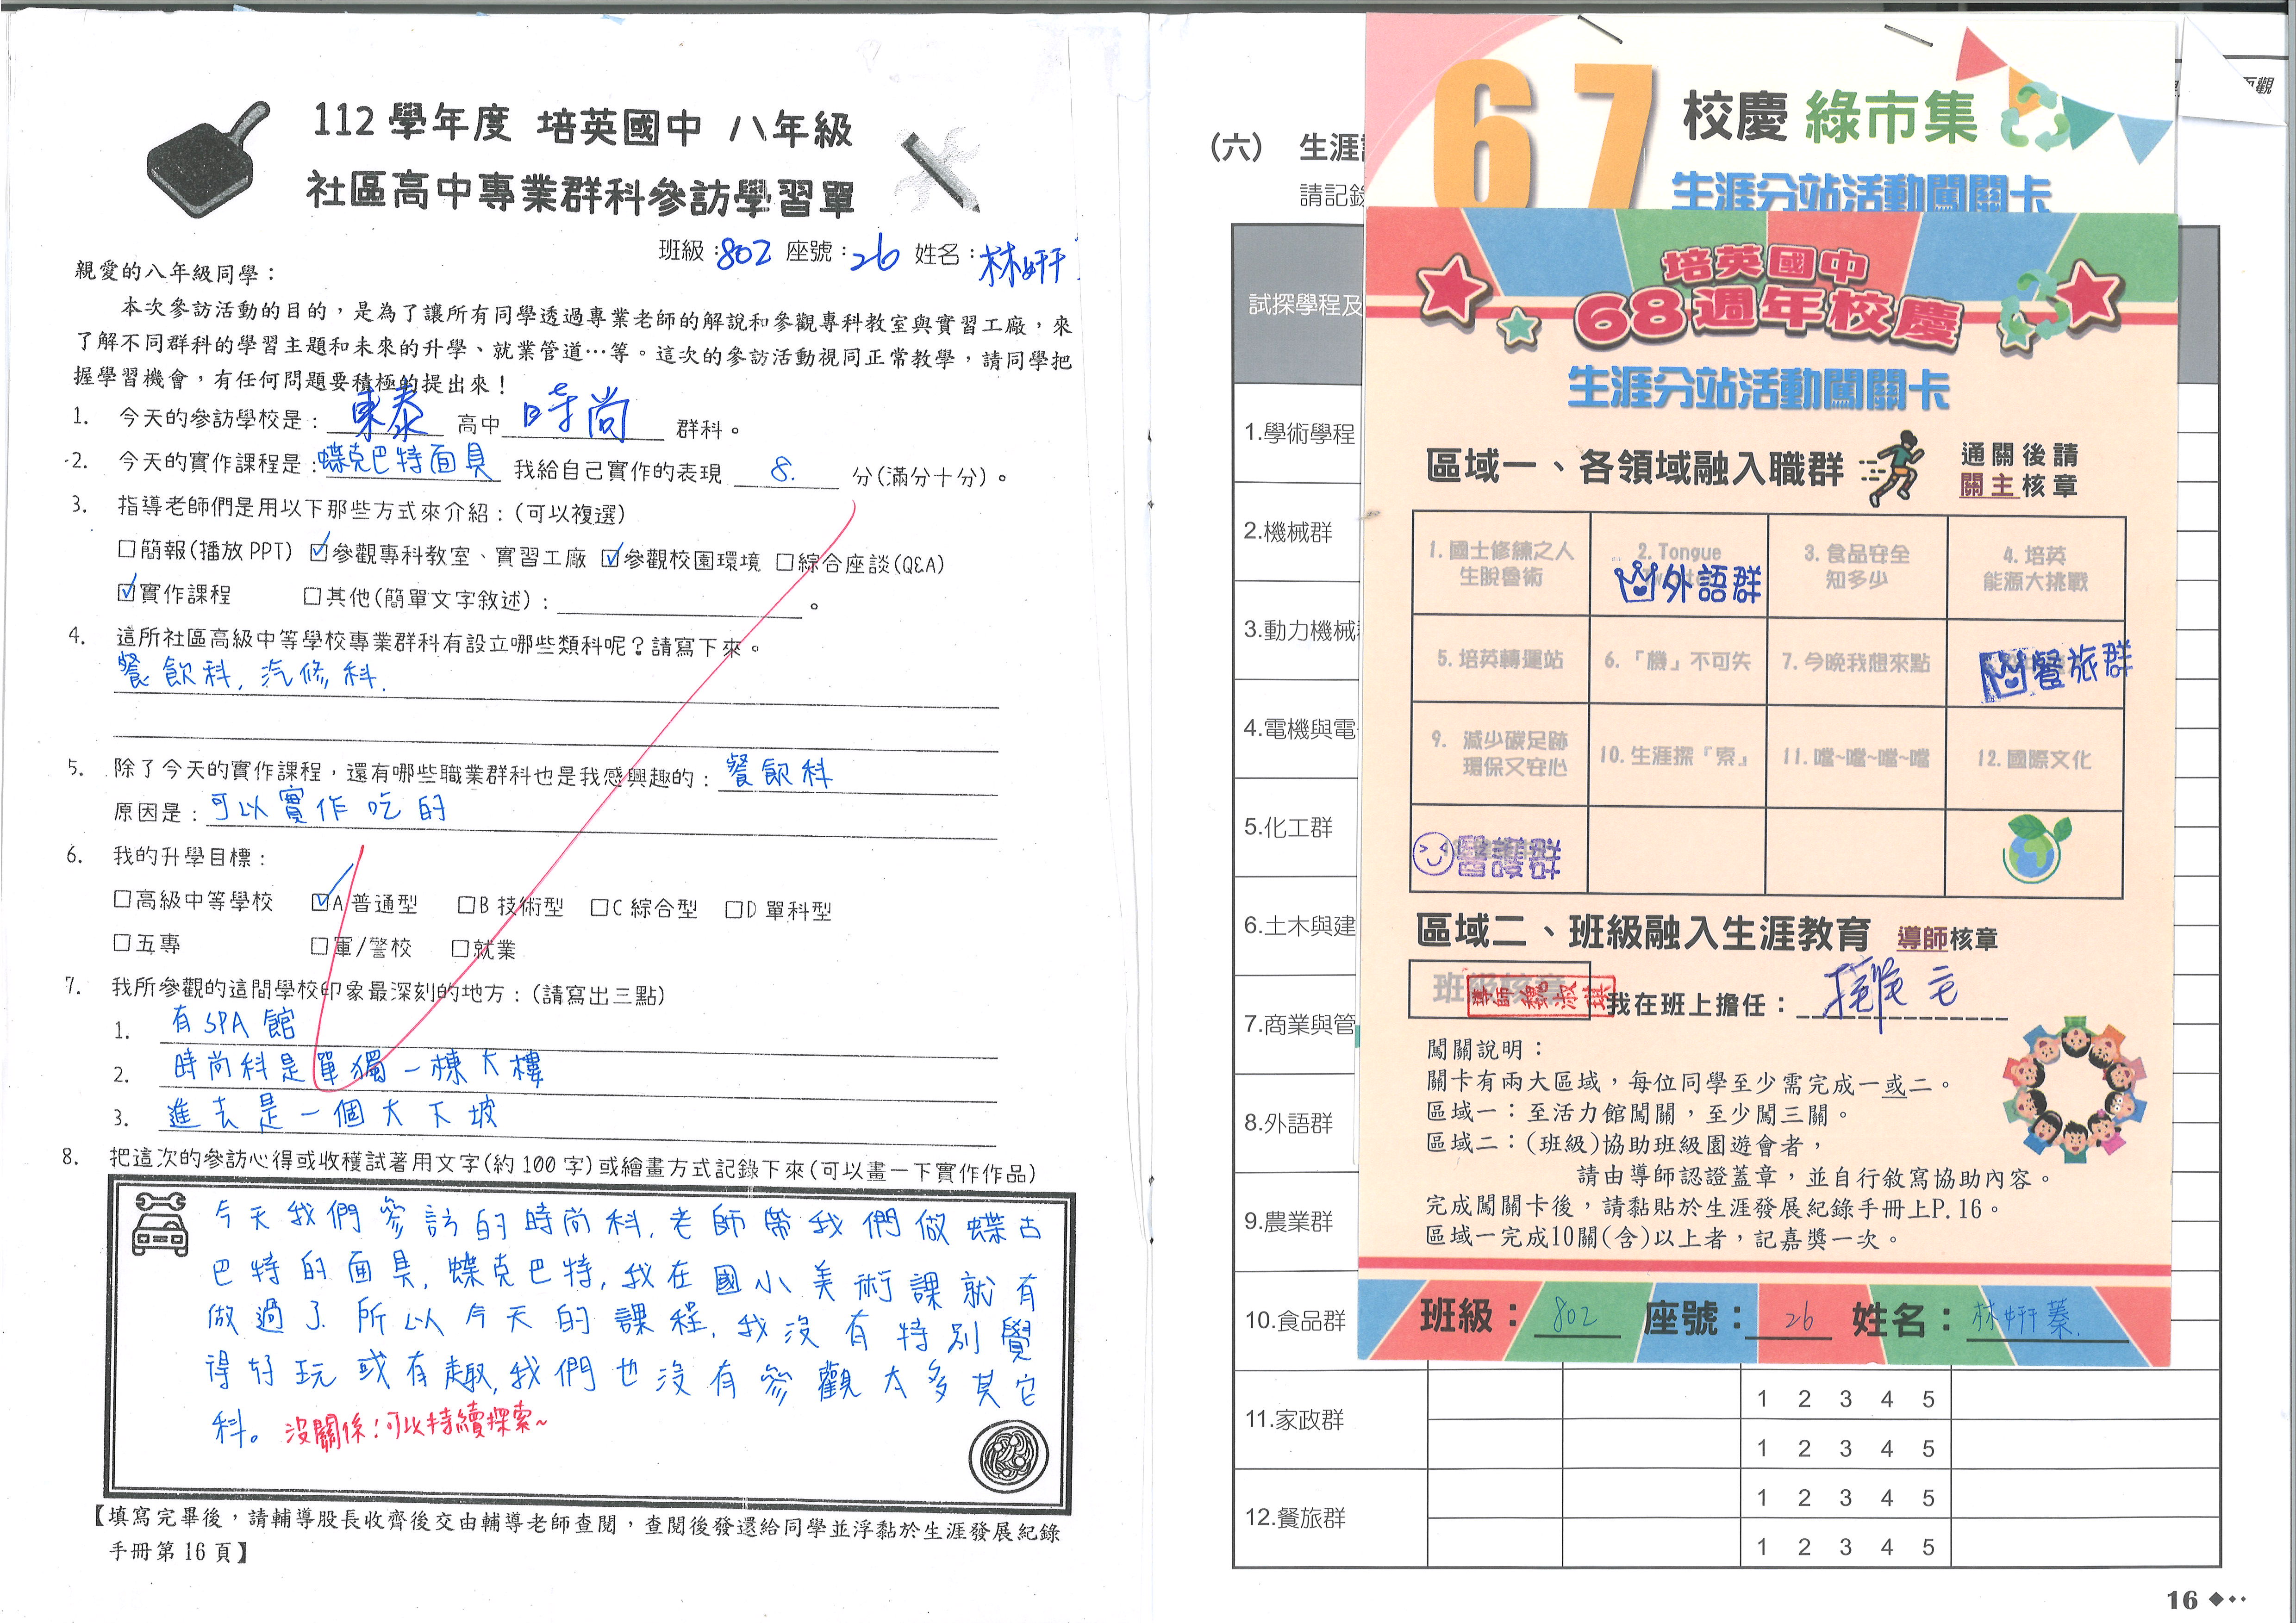 112 學年度 培英國中 八年級
社區高中專業群科參訪學習單
班級:802 座號:26 姓名:林妍
親愛的八年級同學：
本次參訪活動的目的，是為了讓所有同學透過專業老師的解說和參觀專科教室與實習工廠，來
了解不同群科的學習主題和未來的升學、就業管道…等。這次的參訪活動視同正常教學，請同學把
握學習機會，有任何問題要積極的提出來！
1. 今天的參訪學校是：東泰 高中 時尚 群科。
2. 今天的實作課程是：蝶克巴特面具 我給自己實作的表現 8. 分(滿分十分)。
3. 指導老師們是用以下那些方式來介紹：(可以複選)
□簡報(播放PPT) ☑參觀專科教室、實習工廠 ☑參觀校園環境 □綜合座談(Q&A)
☑實作課程 □其他(簡單文字敘述)：。
4. 這所社區高級中等學校專業群科有設立哪些類科呢？請寫下來。
餐飲科, 汽修科.
5. 除了今天的實作課程，還有哪些職業群科也是我感興趣的：餐飲科
原因是：可以實作吃的
6. 我的升學目標：
□高級中等學校 ☑A 普通型 □B 技術型 □C 綜合型 □D 單科型
□五專 □軍/警校 □就業
7. 我所參觀的這間學校印象最深刻的地方：(請寫出三點)
1. 有SPA館
2. 時尚科是單獨一棟大樓
3. 進去是一個大下坡
8. 把這次的參訪心得或收穫試著用文字(約100字)或繪畫方式記錄下來(可以畫一下實作作品)
今天我們參訪的時尚科, 老師帶我們做蝶古
巴特的面具, 蝶克巴特, 我在國小美術課就有
做過了. 所以今天的課程, 我沒有特別覺
得好玩或有趣, 我們也沒有參觀太多其它
科。 沒關係！可以持續探索~
【填寫完畢後，請輔導股長收齊後交由輔導老師查閱，查閱後發還給同學並浮黏於生涯發展紀錄
手冊第16頁】
67 校慶 綠市集
生涯分站活動闖關卡
(六) 生涯
請記錄
試探學程及
1.學術學程
2.機械群
3.動力機械
4.電機與電
5.化工群
6.土木與建
7.商業與管
8.外語群
9.農業群
10.食品群
11.家政群
12.餐旅群
1 2 3 4 5
1 2 3 4 5
1 2 3 4 5
1 2 3 4 5
培英國中
68週年校慶
生涯分站活動闖關卡
區域一、各領域融入職群
通關後請
關主核章
1. 國士修練之人
生脫魯術
2. Tongue
外語群
3. 食品安全
知多少
4. 培英
能源大挑戰
5. 培英轉運站
6. 「機」不可失
7. 今晚我想來點
餐旅群
9. 減少碳足跡
環保又安心
10. 生涯探『索』
11. 噹~噹~噹~噹
12. 國際文化
醫護群
區域二、班級融入生涯教育 導師核章
班級核章
導師 魏淑琪
我在班上擔任：
闖關說明：
關卡有兩大區域，每位同學至少需完成一或二。
區域一：至活力館闖關，至少闖三關。
區域二：(班級)協助班級園遊會者，
請由導師認證蓋章，並自行敘寫協助內容。
完成闖關卡後，請黏貼於生涯發展紀錄手冊上P.16。
區域一完成10關(含)以上者，記嘉獎一次。
班級：802 座號：26 姓名：林妍蓁
16